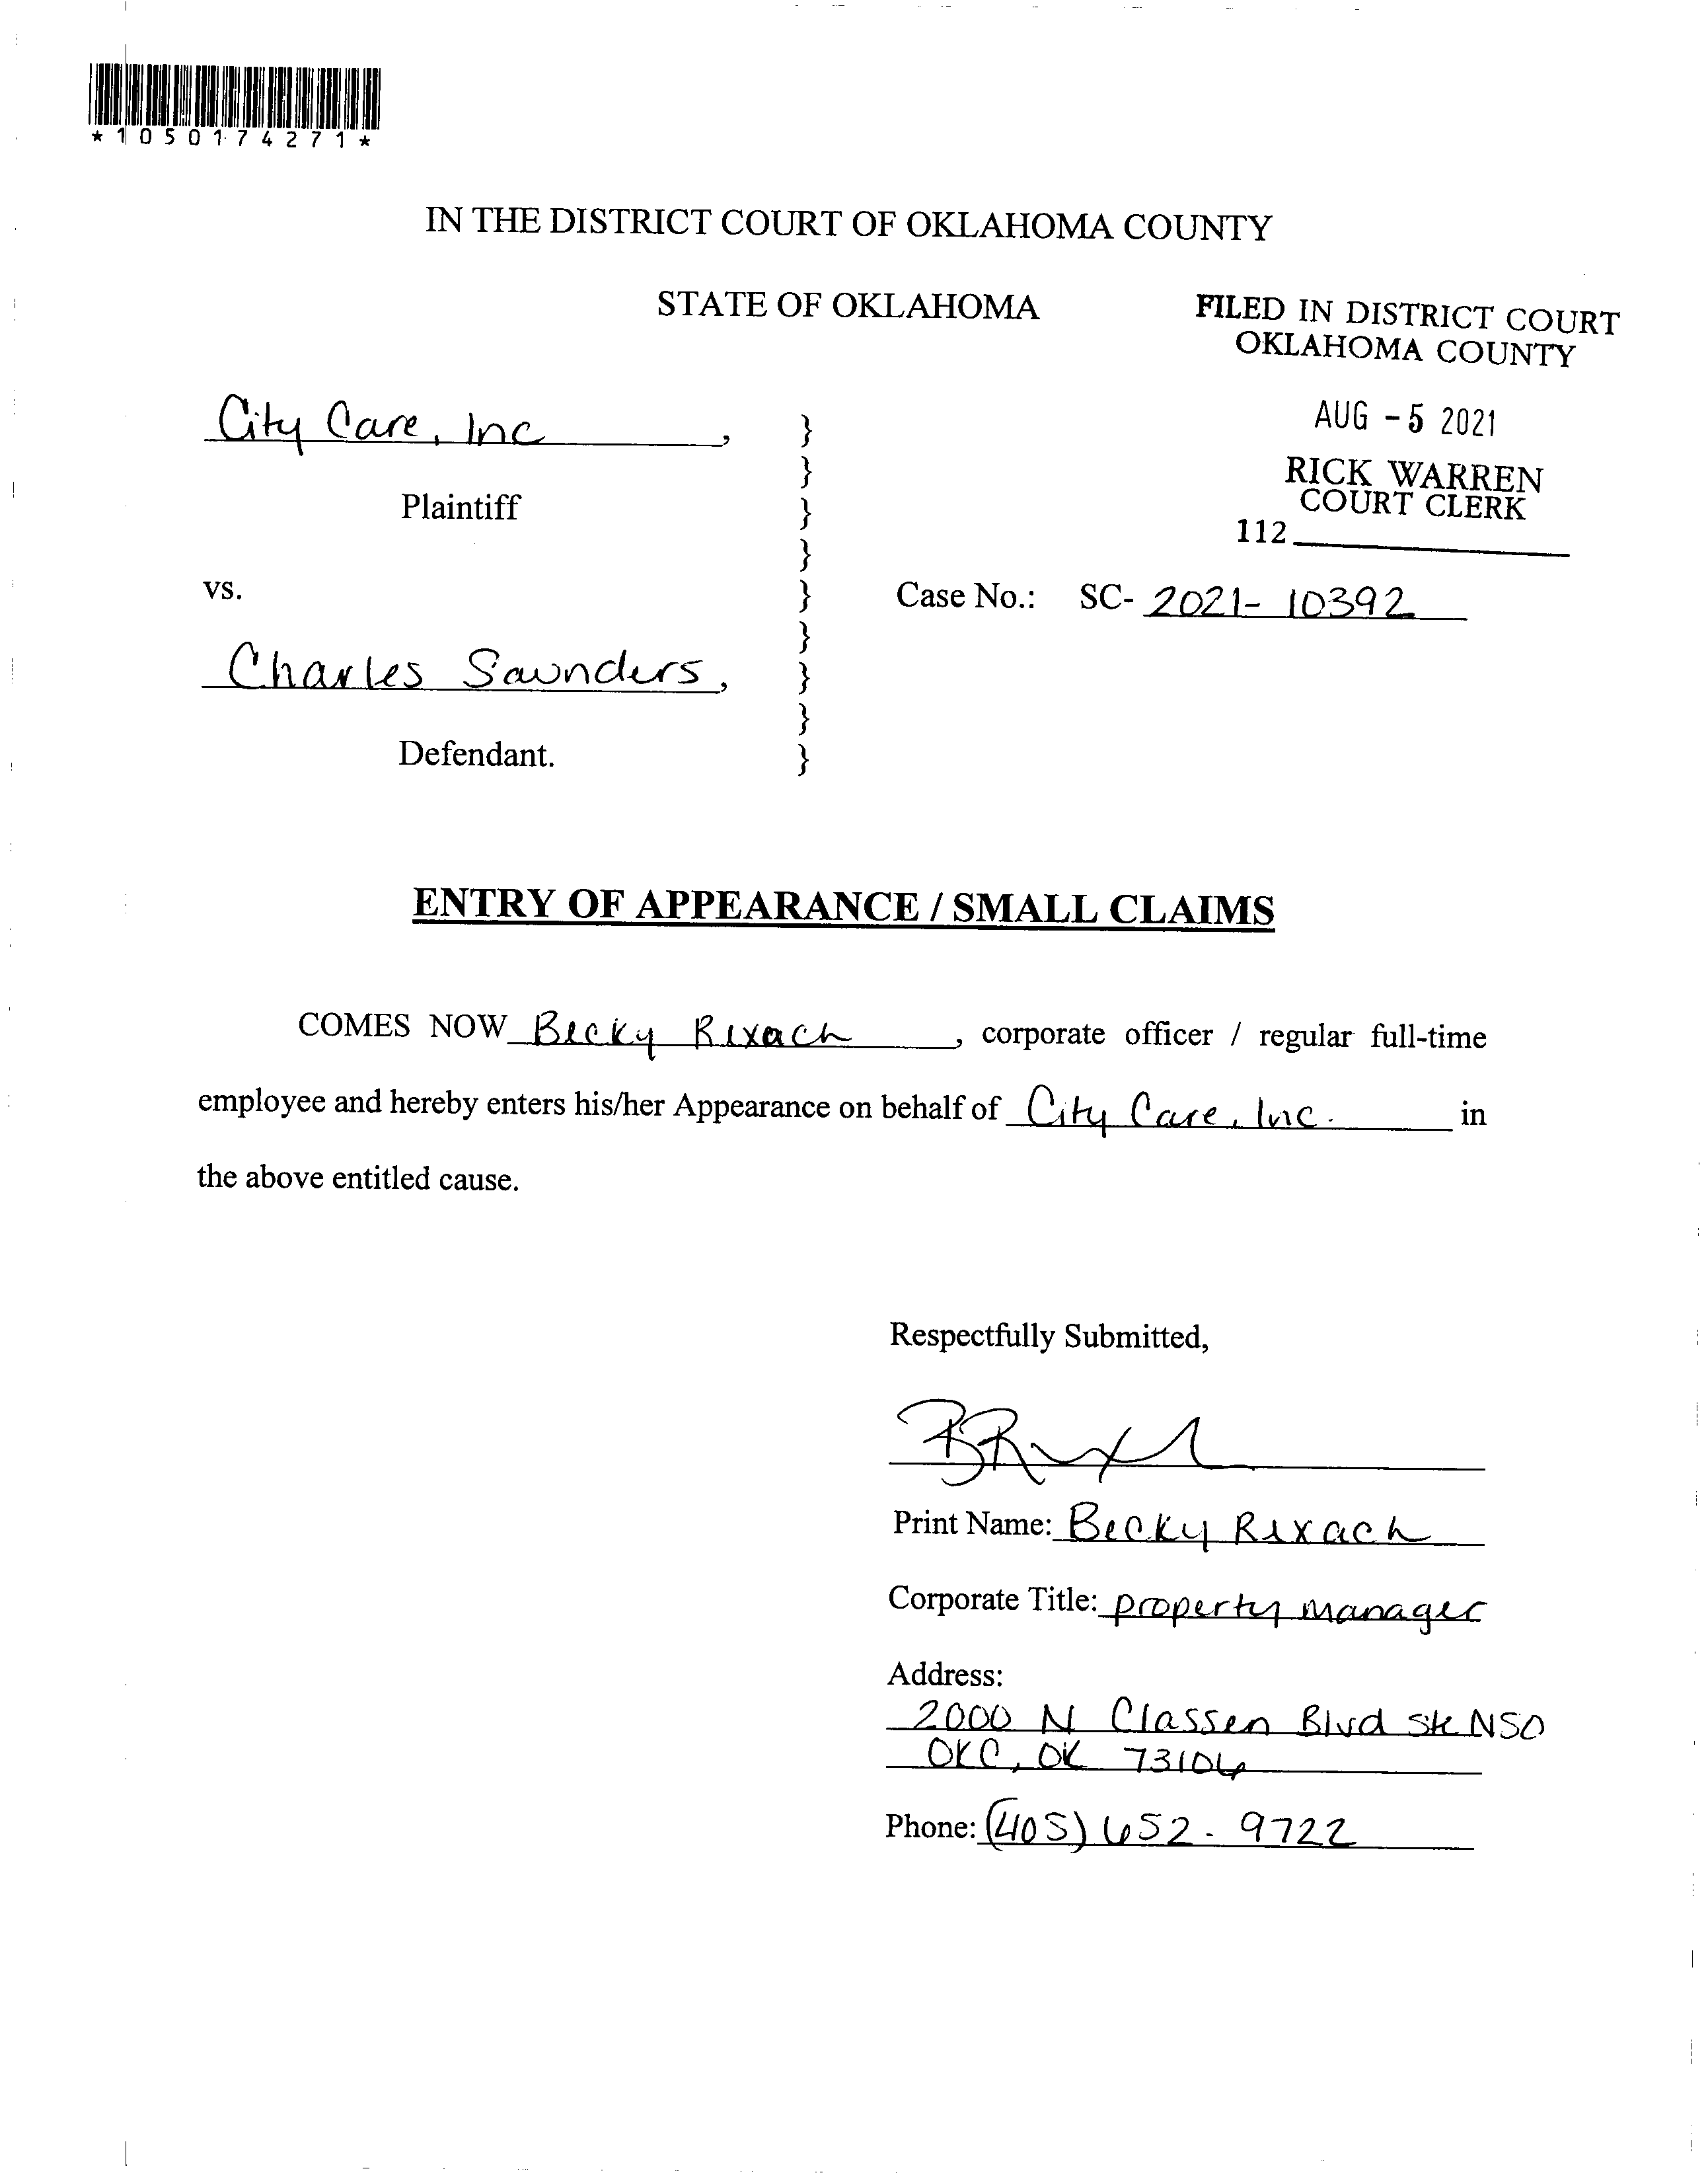 *1050174271*
IN THE DISTRICT COURT OF OKLAHOMA COUNTY
STATE OF OKLAHOMA
FILED IN DISTRICT COURT
OKLAHOMA COUNTY
AUG -5 2021
RICK WARREN
COURT CLERK
112
City Care, Inc,
Plaintiff
vs.
Case No.: SC- 2021- 10392
Charles Saunders,
Defendant.
}
}
}
}
}
}
}
}
}
ENTRY OF APPEARANCE / SMALL CLAIMS
COMES NOW Becky Rixach, corporate officer / regular full-time
employee and hereby enters his/her Appearance on behalf of City Care, Inc. in
the above entitled cause.
Respectfully Submitted,
Print Name: Becky Rixach
Corporate Title: property manager
Address:
2000 N Classen Blvd Ste N50
OKC, OK 73106
Phone: (405) 652-9722